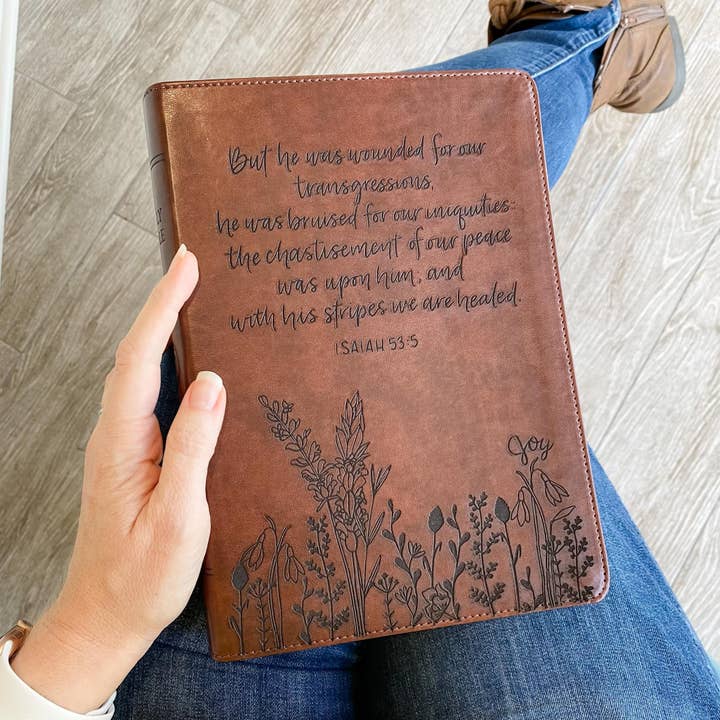 But he was wounded for our
transgressions,
he was bruised for our iniquities:
the chastisement of our peace
was upon him, and
with his stripes we are healed.
ISAIAH 53:5
Joy